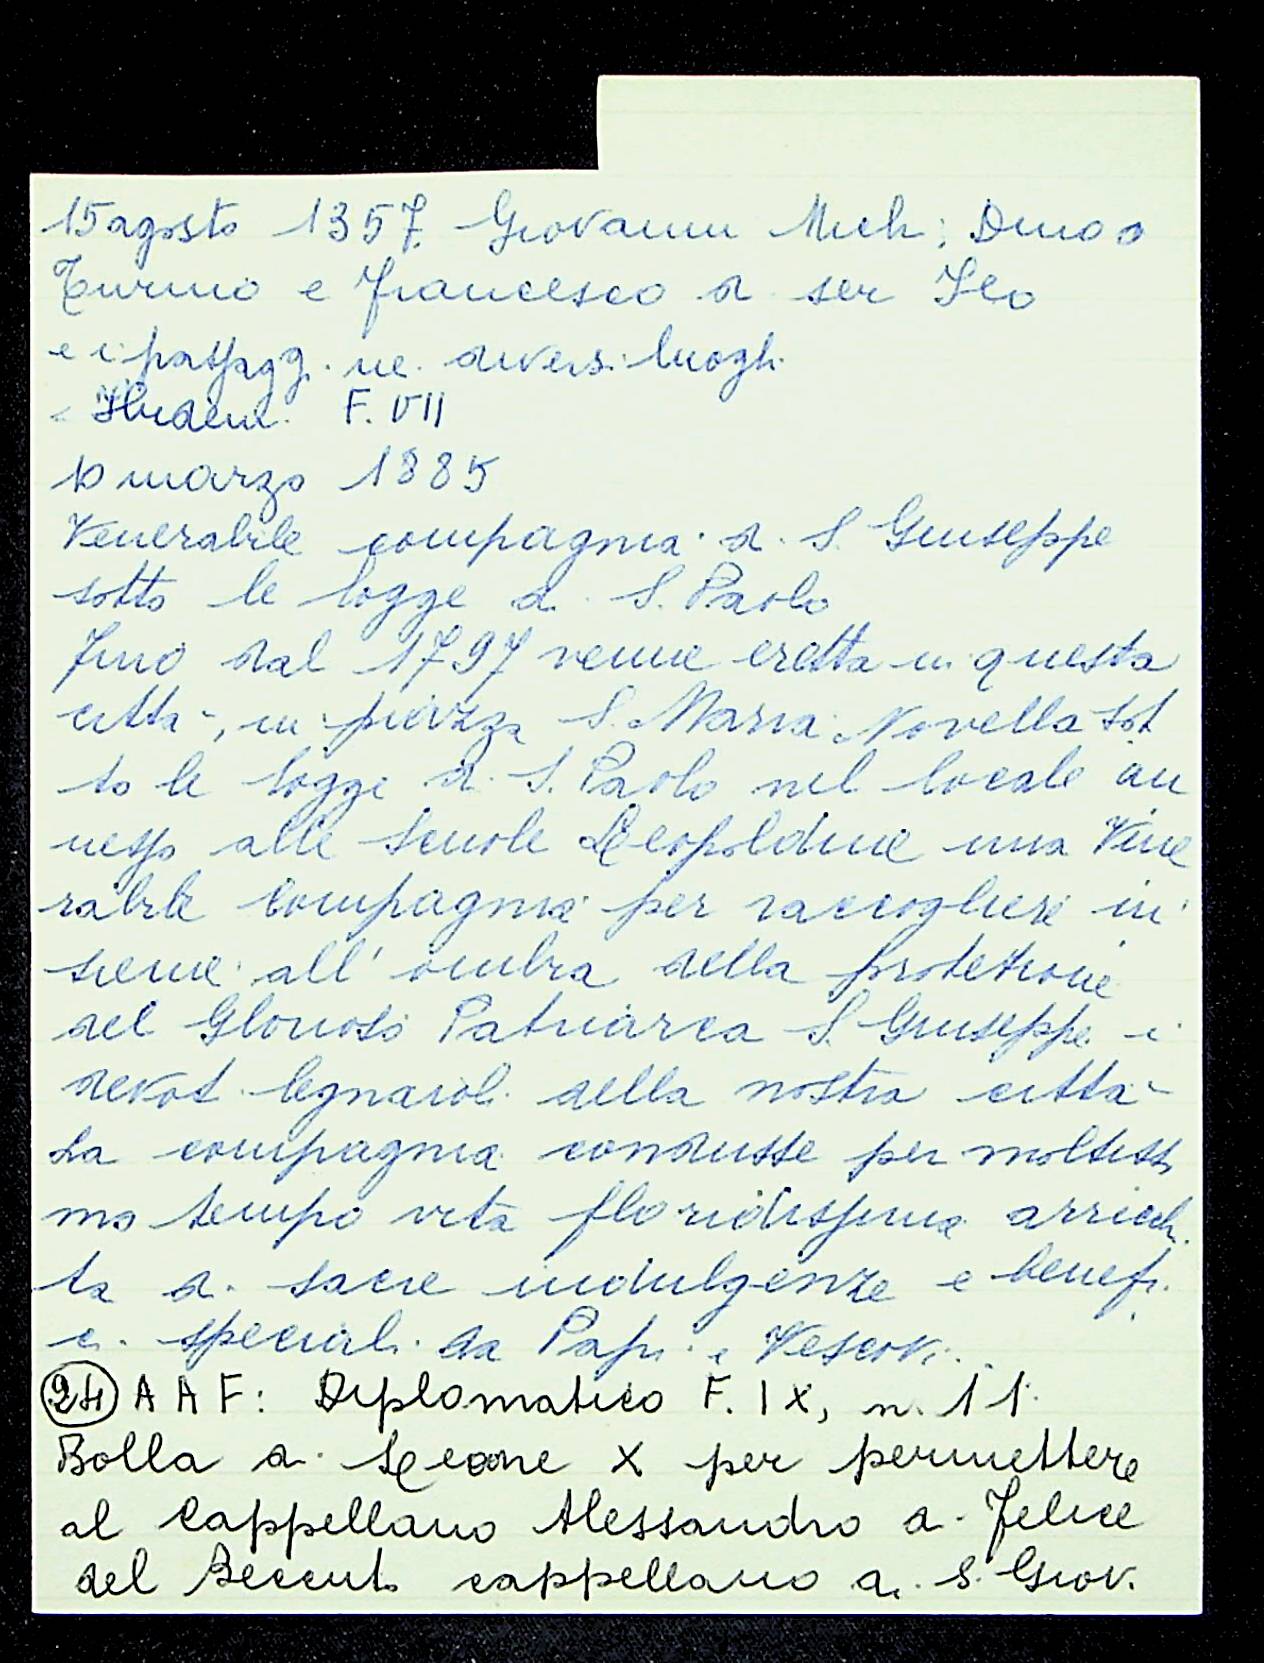 15 agosto 1357. Giovanni Mich; Dino o
Turino e Francesco di ser Feo
e i passaggi nei diversi luoghi
Ibidem. F. VII
10 marzo 1885
Venerabile compagnia di S. Giuseppe
sotto le logge di S. Paolo
Fino dal 1797 venne eretta in questa
città, in piazza S. Maria Novella sot
to le logge di S. Paolo nel locale an
nesso alle Scuole Leopoldine una Vene
rabile Compagnia per raccogliere in
sieme all' ombra della protezione
del Glorioso Patriarca S. Giuseppe i
devoti legnaioli della nostra città
La compagnia condusse per moltissi
mo tempo vita floridissima arricchi
ta di sacre indulgenze e benefi
ci speciali da Papi e Vescovi.
24 A A F: Diplomatico F. IX, n. 11.
Bolla di Leone X per permettere
al Cappellano Alessandro di Felice
del Beccuto cappellano di S. Giov.